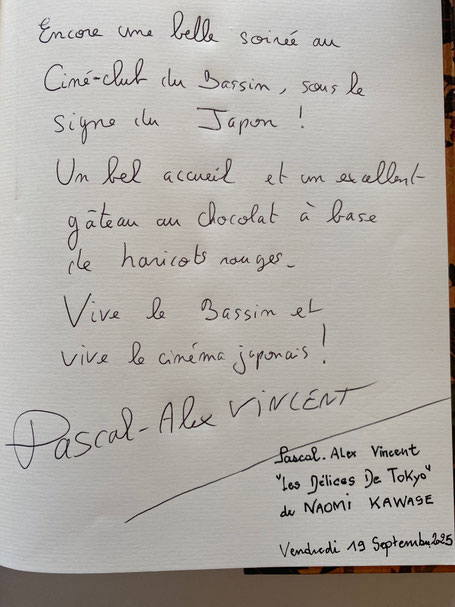 Encore une belle soirée au
Ciné-club du Bassin, sous le
signe du Japon !
Un bel accueil et un excellent
gâteau au chocolat à base
de haricots rouges.
Vive le Bassin et
vive le cinéma japonais !
Pascal-Alex VINCENT
Pascal. Alex Vincent
"Les Délices De Tokyo"
de NAOMI KAWASE
Vendredi 19 Septembre 2025